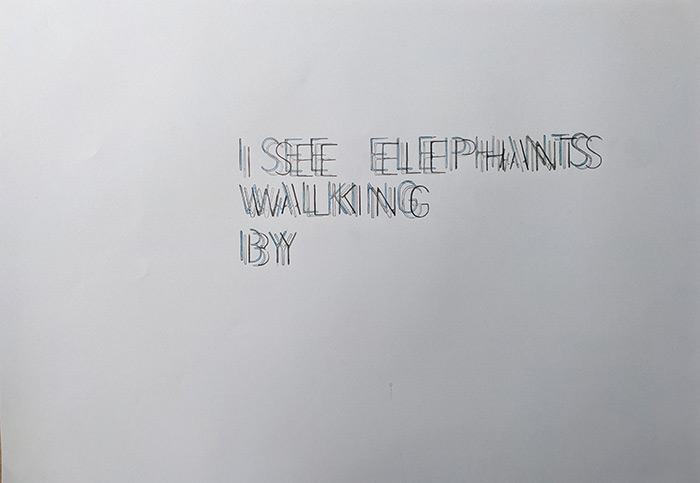 I SEE ELEPHANTS
WALKING
BY